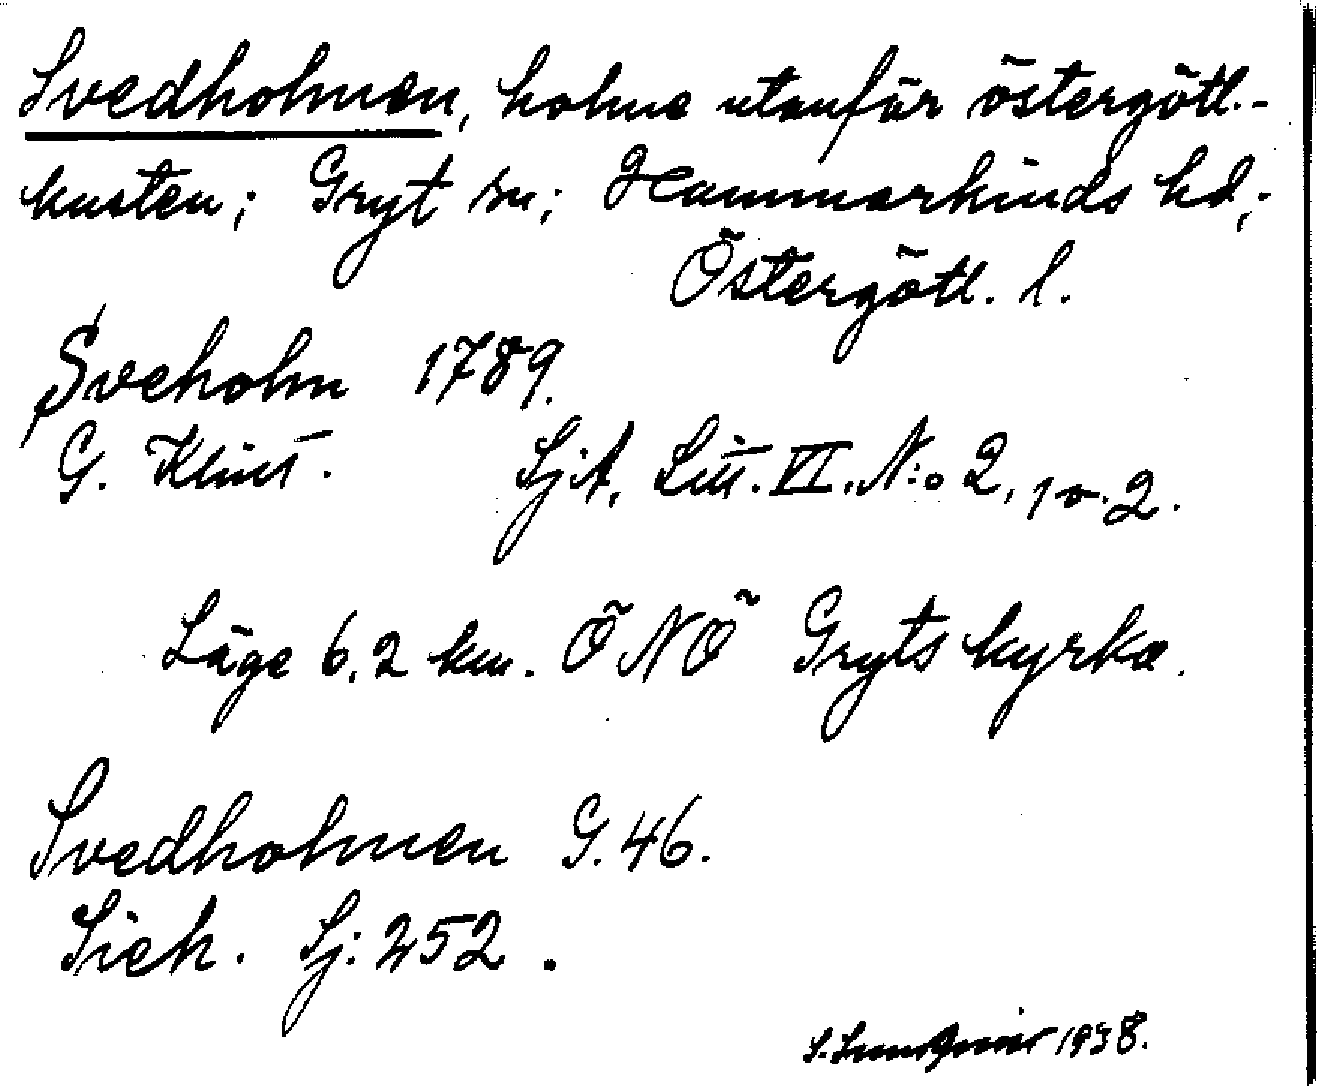 Svedholmen, holme utanför östergötl.-
kusten; Gryt sn; Hammarkinds hd;
Östergötl. l.
Sveholm 1789.
G. Klint. SjA, Litt. VI. N:o 2, 1 o. 2.
Läge 6,2 km. ÖNÖ Gryts kyrka.
Svedholmen G. 46.
Sjök. Sj: 252.
S. Lundqvist 1938.